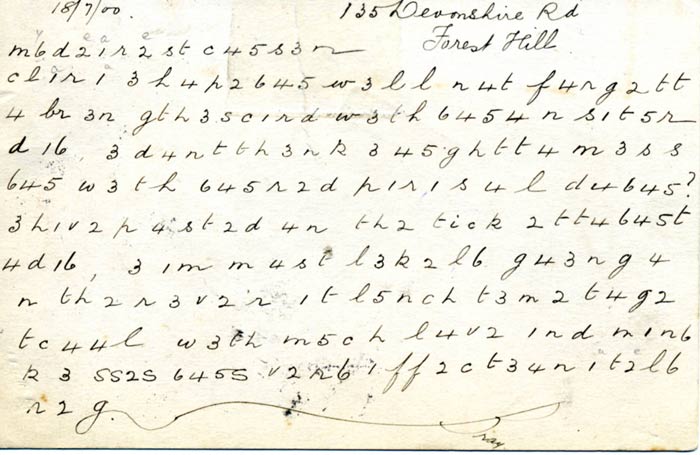 18/7/00. 135 Devonshire Rd
Forest Hill
m6d21r2st c45s3n
cl1r1 3h4p2645 w3ll n4t f4rg2tt
4 br3n gth3sc1rd w3th 6454n s1t5r
d16, 3d4ntth3nk 345ghtt4 m3ss
645 w3th 645r2d p1r1s4l d4645?
3h1v2p4st2d 4n th2 tick2tt4645t
4d16, 31m m4st l3k2l6 g43ng4
n th2r3v2r 1tl5ncht3m2t4g2
tc44l w3th m5ch l4v2 1nd m1n6
k3ss2s 6455 v2r6 1ff2ct34n1t2l6
r2g.